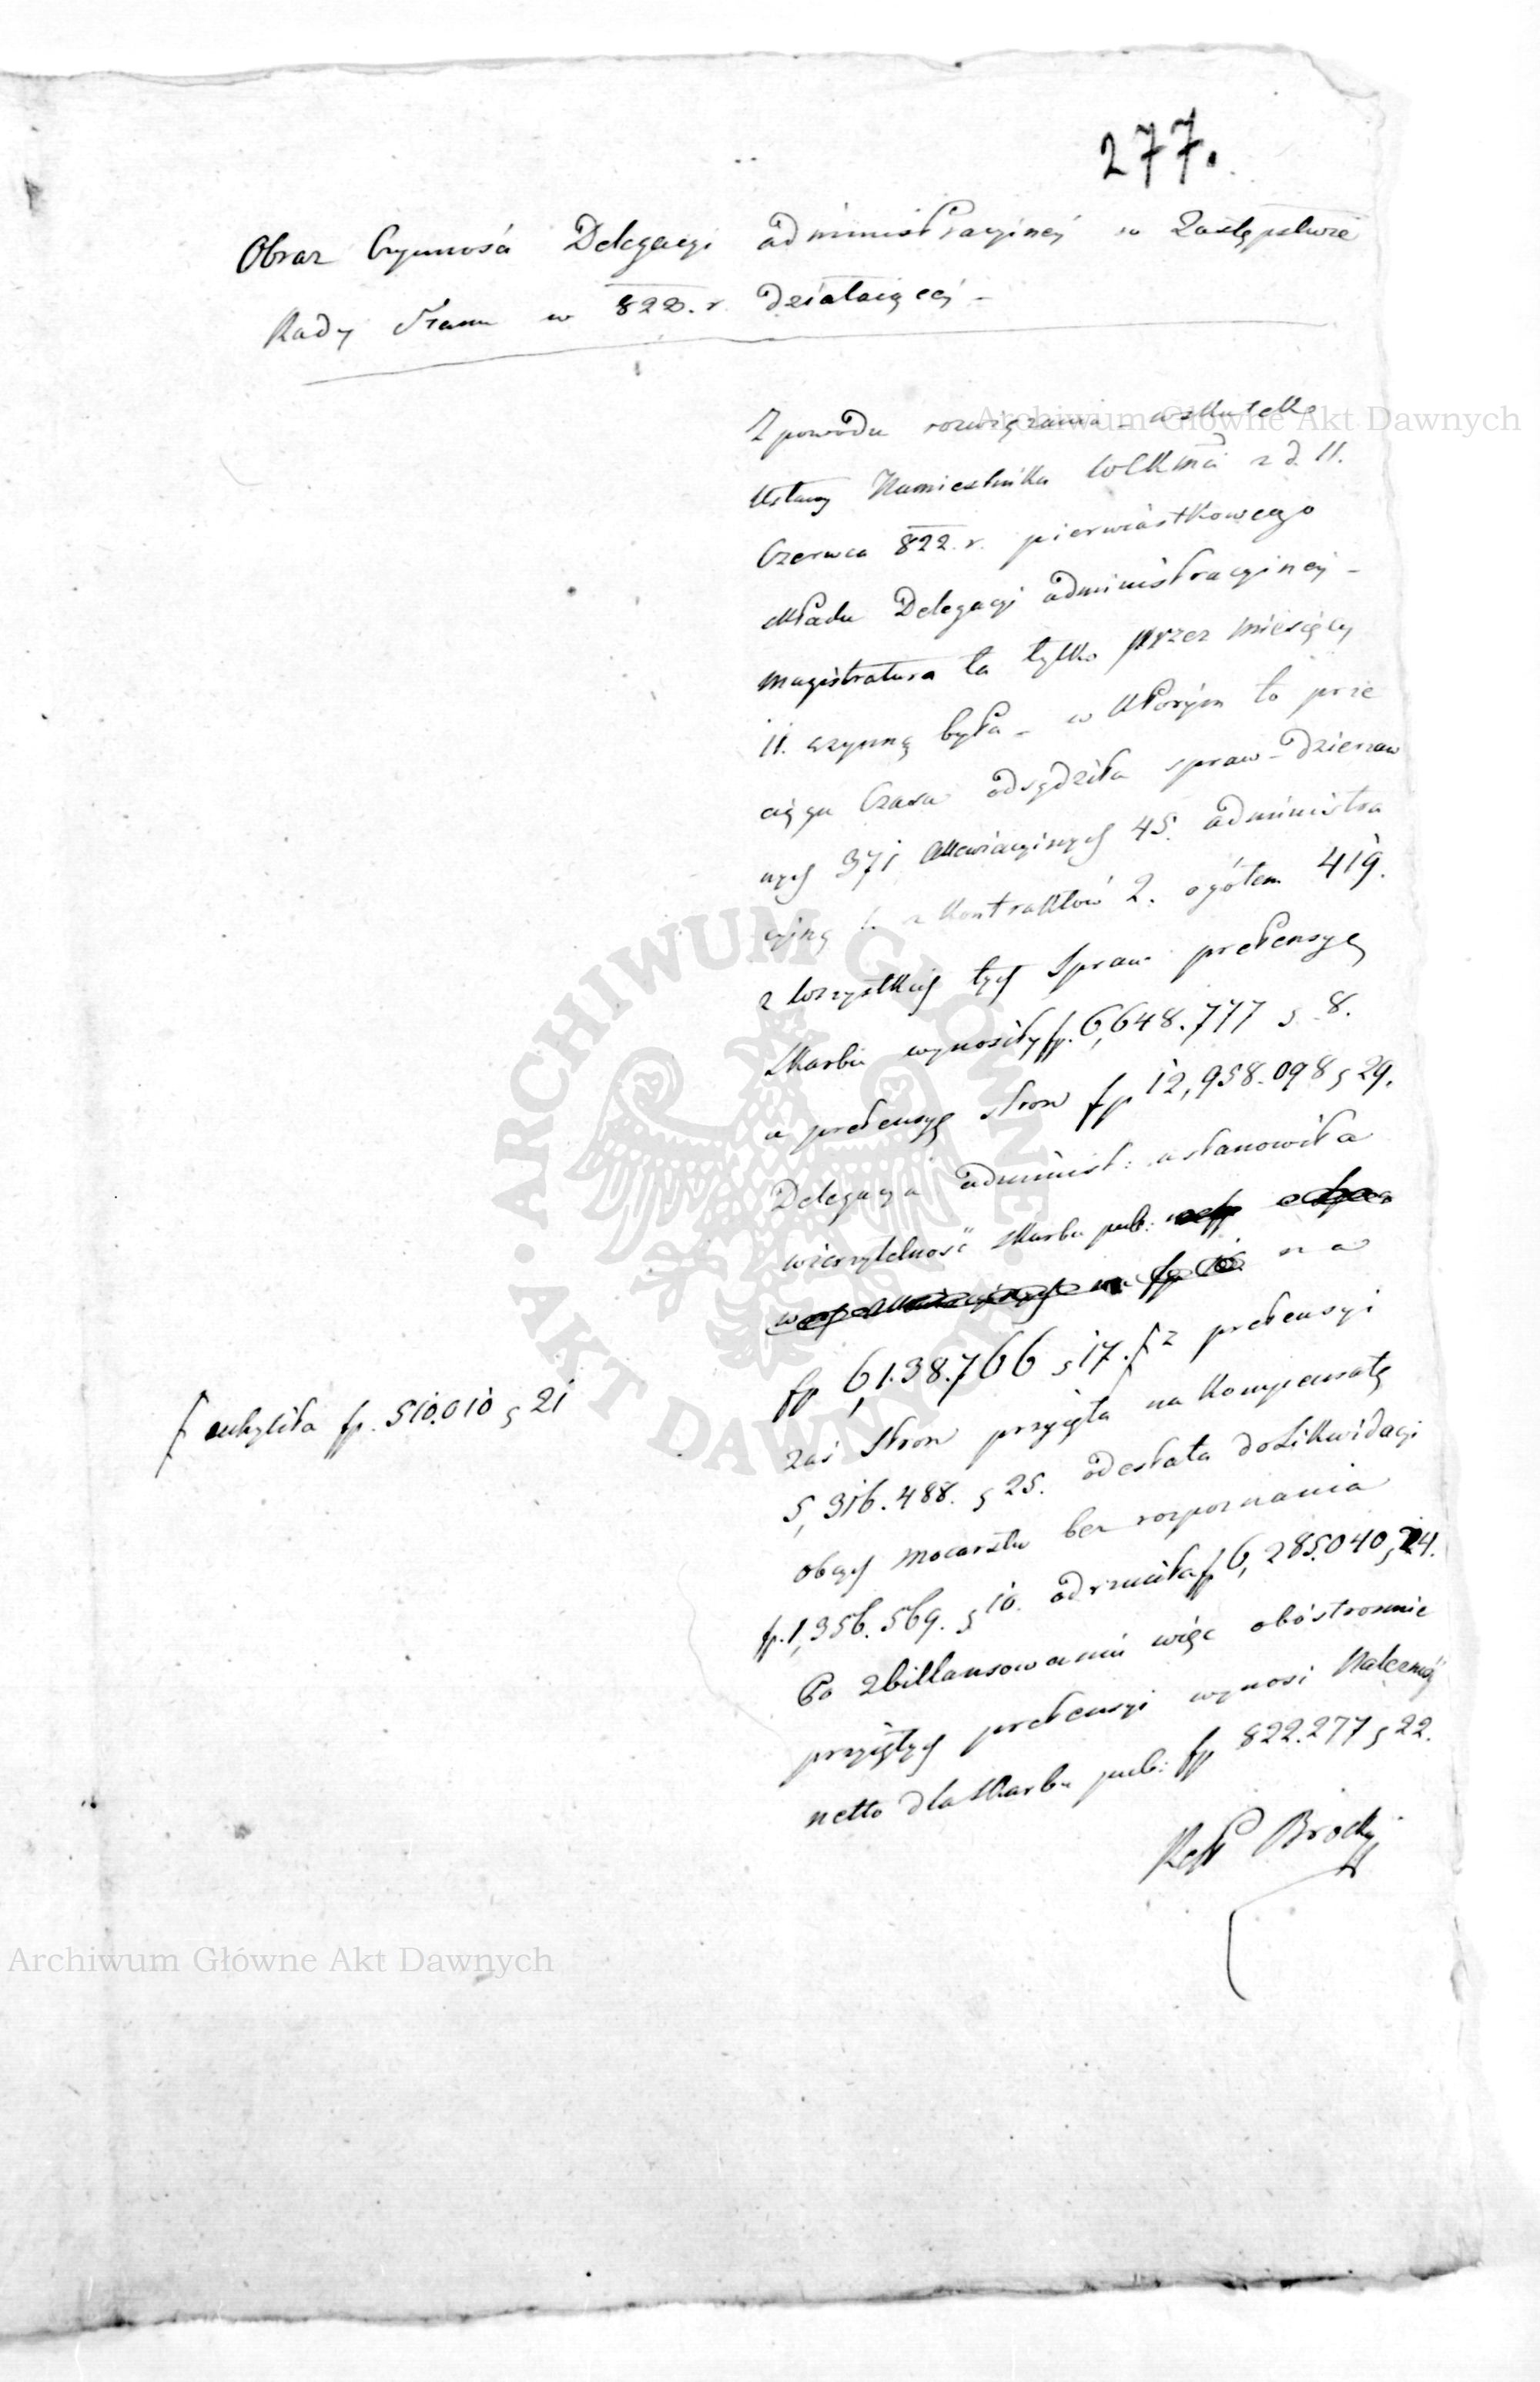 277.
Obraz Czynności Delegacyi administracyiney w Zastępstwie
Rady Stanu w 822. r. działaiącey –
Z powodu rozwiązania wskutek
Ustawy Namiestnika z d. 11.
Czerwca 822. r. pierwiastkowego
składu Delegacyi administracyiney –
magistratura ta tylko przez miesięcy
11. czynną była – w którym to prze
ciągu Czasu odsądziła spraw – dzierzaw
nych 371, likwidacyinych 45. administra
cyiną 1. z kontraktów 2. ogółem 419.
z wszystkich tych Spraw pretensye
skarbu wynosiły fp. 6,648.777 g 8.
a pretensye stron fp 12,958.098 g 29.
Delegacya administ: ustanowiła
wierzytelność skarbu pub: na
fp 6,138.766 g 17. f z pretensyi
f uchyliła fp. 510.010 g 21
zaś Stron przyjęła na kompensatę
5,316.488. g 25. odesłała do Likwidacyi
obcych mocarstw bez rozpoznania
fp. 1,356.569. g 10. odrzuciła fp 6,285.040 g 24.
Po zbillansowaniu więc obóstronnie
przyjętych pretensyi wynosi Należność
netto dla skarbu pub: fp 822.277 g 22.
Brocki
Archiwum Główne Akt Dawnych
ARCHIWUM GŁÓWNE • AKT DAWNYCH •
Archiwum Główne Akt Dawnych